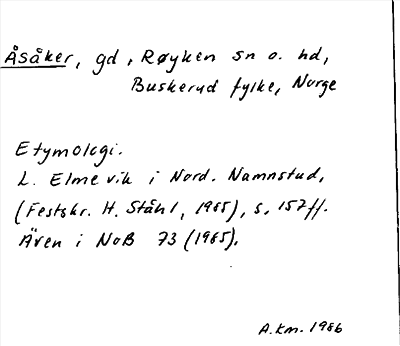 Åsåker, gd, Røyken sn o. hd,
Buskerud fylke, Norge
Etymologi.
L. Elmevik i Nord. Namnstud,
(Festskr. H. Ståhl, 1985), s. 157ff.
Även i NoB 73 (1985).
A.km. 1986